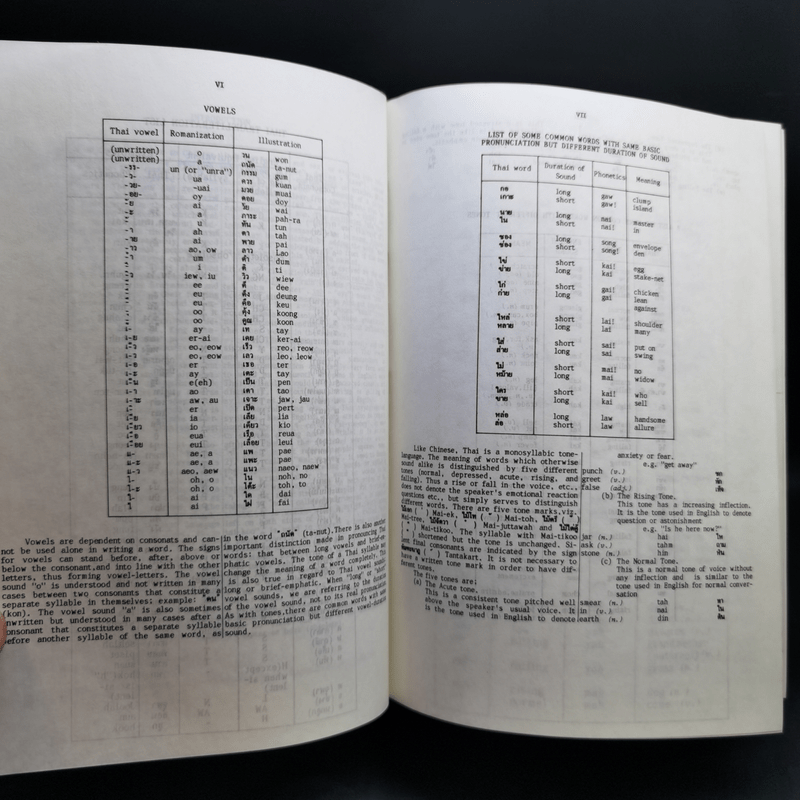 VI
VOWELS
Thai vowel Romanization Illustration
(unwritten) o วน won
(unwritten) a ถนัด ta-nut
-รร- un (or "unra") กรรม gum
-ว- ua ควร kuan
-วย- -uai มวย muai
-อย- oy ดอย doy
ai วัย wai
-ะ a ภาระ pah-ra
u ทัน tun
-า ah ตา tah
-าย ai พาย pai
-าว ao, ow ลาว Lao
um ดำ dum
i ติ ti
iew, iu วิว wiew
ee ดี dee
eu ดึง deung
eu คือ keu
oo คุ้ง koong
oo คูณ koon
เ- ay เท tay
เ-ย er-ai เคย ker-ai
เ-็ว eo, eow เร็ว reo, reow
เ-ว eo, eow เลว leo, leow
เ-อ er เธอ ter
เ-ะ ay เตะ tay
เ-็น e(eh) เป็น pen
เ-า ao เตา tao
เ-าะ aw, au เจาะ jaw, jau
er เปิด pert
ia เลีย lia
io เคียว kio
eua เรือ reua
eui เลื้อย leui
แ- ae, a แพ pae
แ-ะ ae, a แพะ pae
แ-ว aeo, aew แนว naeo, naew
โ- oh, o โน noh, no
โ-ะ oh, o โต๊ะ toh, to
ใ- ai ใด dai
ไ- ai ไฟ fai
Vowels are dependent on consonants and can-
not be used alone in writing a word. The signs
for vowels can stand before, after, above or
below the consonant,and into line with the other
letters, thus forming vowel-letters. The vowel
sound "o" is understood and not written in many
cases between two consonants that constitute a
separate syllable in themselves: example: "คน"
(kon). The vowel sound "a" is also sometimes
unwritten but understood in many cases after a
consonant that constitutes a separate syllable
before another syllable of the same word, as
in the word "ถนัด" (ta-nut).There is also another
important distinction made in pronouncing Thai
words: that between long vowels and brief-em-
phatic vowels. The tone of a Thai syllable may
change the meaning of a word completely. This
is also true in regard to Thai vowel sounds,
long or brief-emphatic. When "long" or "short"
vowel sounds, we are referring to the duration
of the vowel sound, not to its real pronunciation.
As with tones,there are common words with same
basic pronunciation but different vowel-duration
sound.
VII
LIST OF SOME COMMON WORDS WITH SAME BASIC
PRONUNCIATION BUT DIFFERENT DURATION OF SOUND
Thai word Duration of Sound Phonetics Meaning
กอ long gaw clump
เกาะ short gaw! island
นาย long nai master
ใน short nai! in
ซอง long song envelope
ซ่อง short song! den
ไข่ short kai! egg
ข่าย long kai stake-net
ไก่ short gai! chicken
ก่าย long gai lean
against
ไหล่ short lai! shoulder
หลาย long lai many
ใส่ short sai! put on
ส่าย long sai swing
ไม่ short mai! no
หม้าย long mai widow
ใคร short kai! who
ขาย long kai sell
หล่อ short law handsome
ล่อ long law allure
Like Chinese, Thai is a monosyllabic tone-
language. The meaning of words which otherwise
sound alike is distinguished by five different
tones (normal, depressed, acute, rising, and
falling). Thus a rise or fall in the voice, etc.,
does not denote the speaker's emotional reaction
questions etc., but simply serves to distinguish
different words. There are five tone marks,viz.
ไม้เอก ( ่ ) Mai-ek, ไม้โท ( ้ ) Mai-toh, ไม้ตรี ( ๊ )
Mai-tree, ไม้จัตวา ( ๋ ) Mai-juttawah and ไม้ไต่คู้
( ็ ) Mai-tikoo. The syllable with Mai-tikoo
is shortened but the tone is unchanged. Si-
lent final consonants are indicated by the sign
( ์ ) Tantakart. It is not necessary to
have a written tone mark in order to have dif-
ferent tones.
The five tones are:
(A) The Acute tone.
This is a consistent tone pitched well
above the speaker's usual voice. It
is the tone used in English to denote
anxiety or fear.
e.g. "get away"
punch (v.)
greet (v.)
false (adj.)
(b) The Rising Tone.
This tone has a increasing inflection.
It is the tone used in English to denote
question or astonishment
e.g. "Is he here now?"
jar (n.) hai ไห
ask (v.) tahm ถาม
stone (n.) hin หิน
(c) The Normal Tone.
This is a normal tone of voice without
any inflection and is similar to the
tone used in English for normal conver-
sation
smear (v.) tah ทา
in (v.) nai ใน
earth (n.) din ดิน